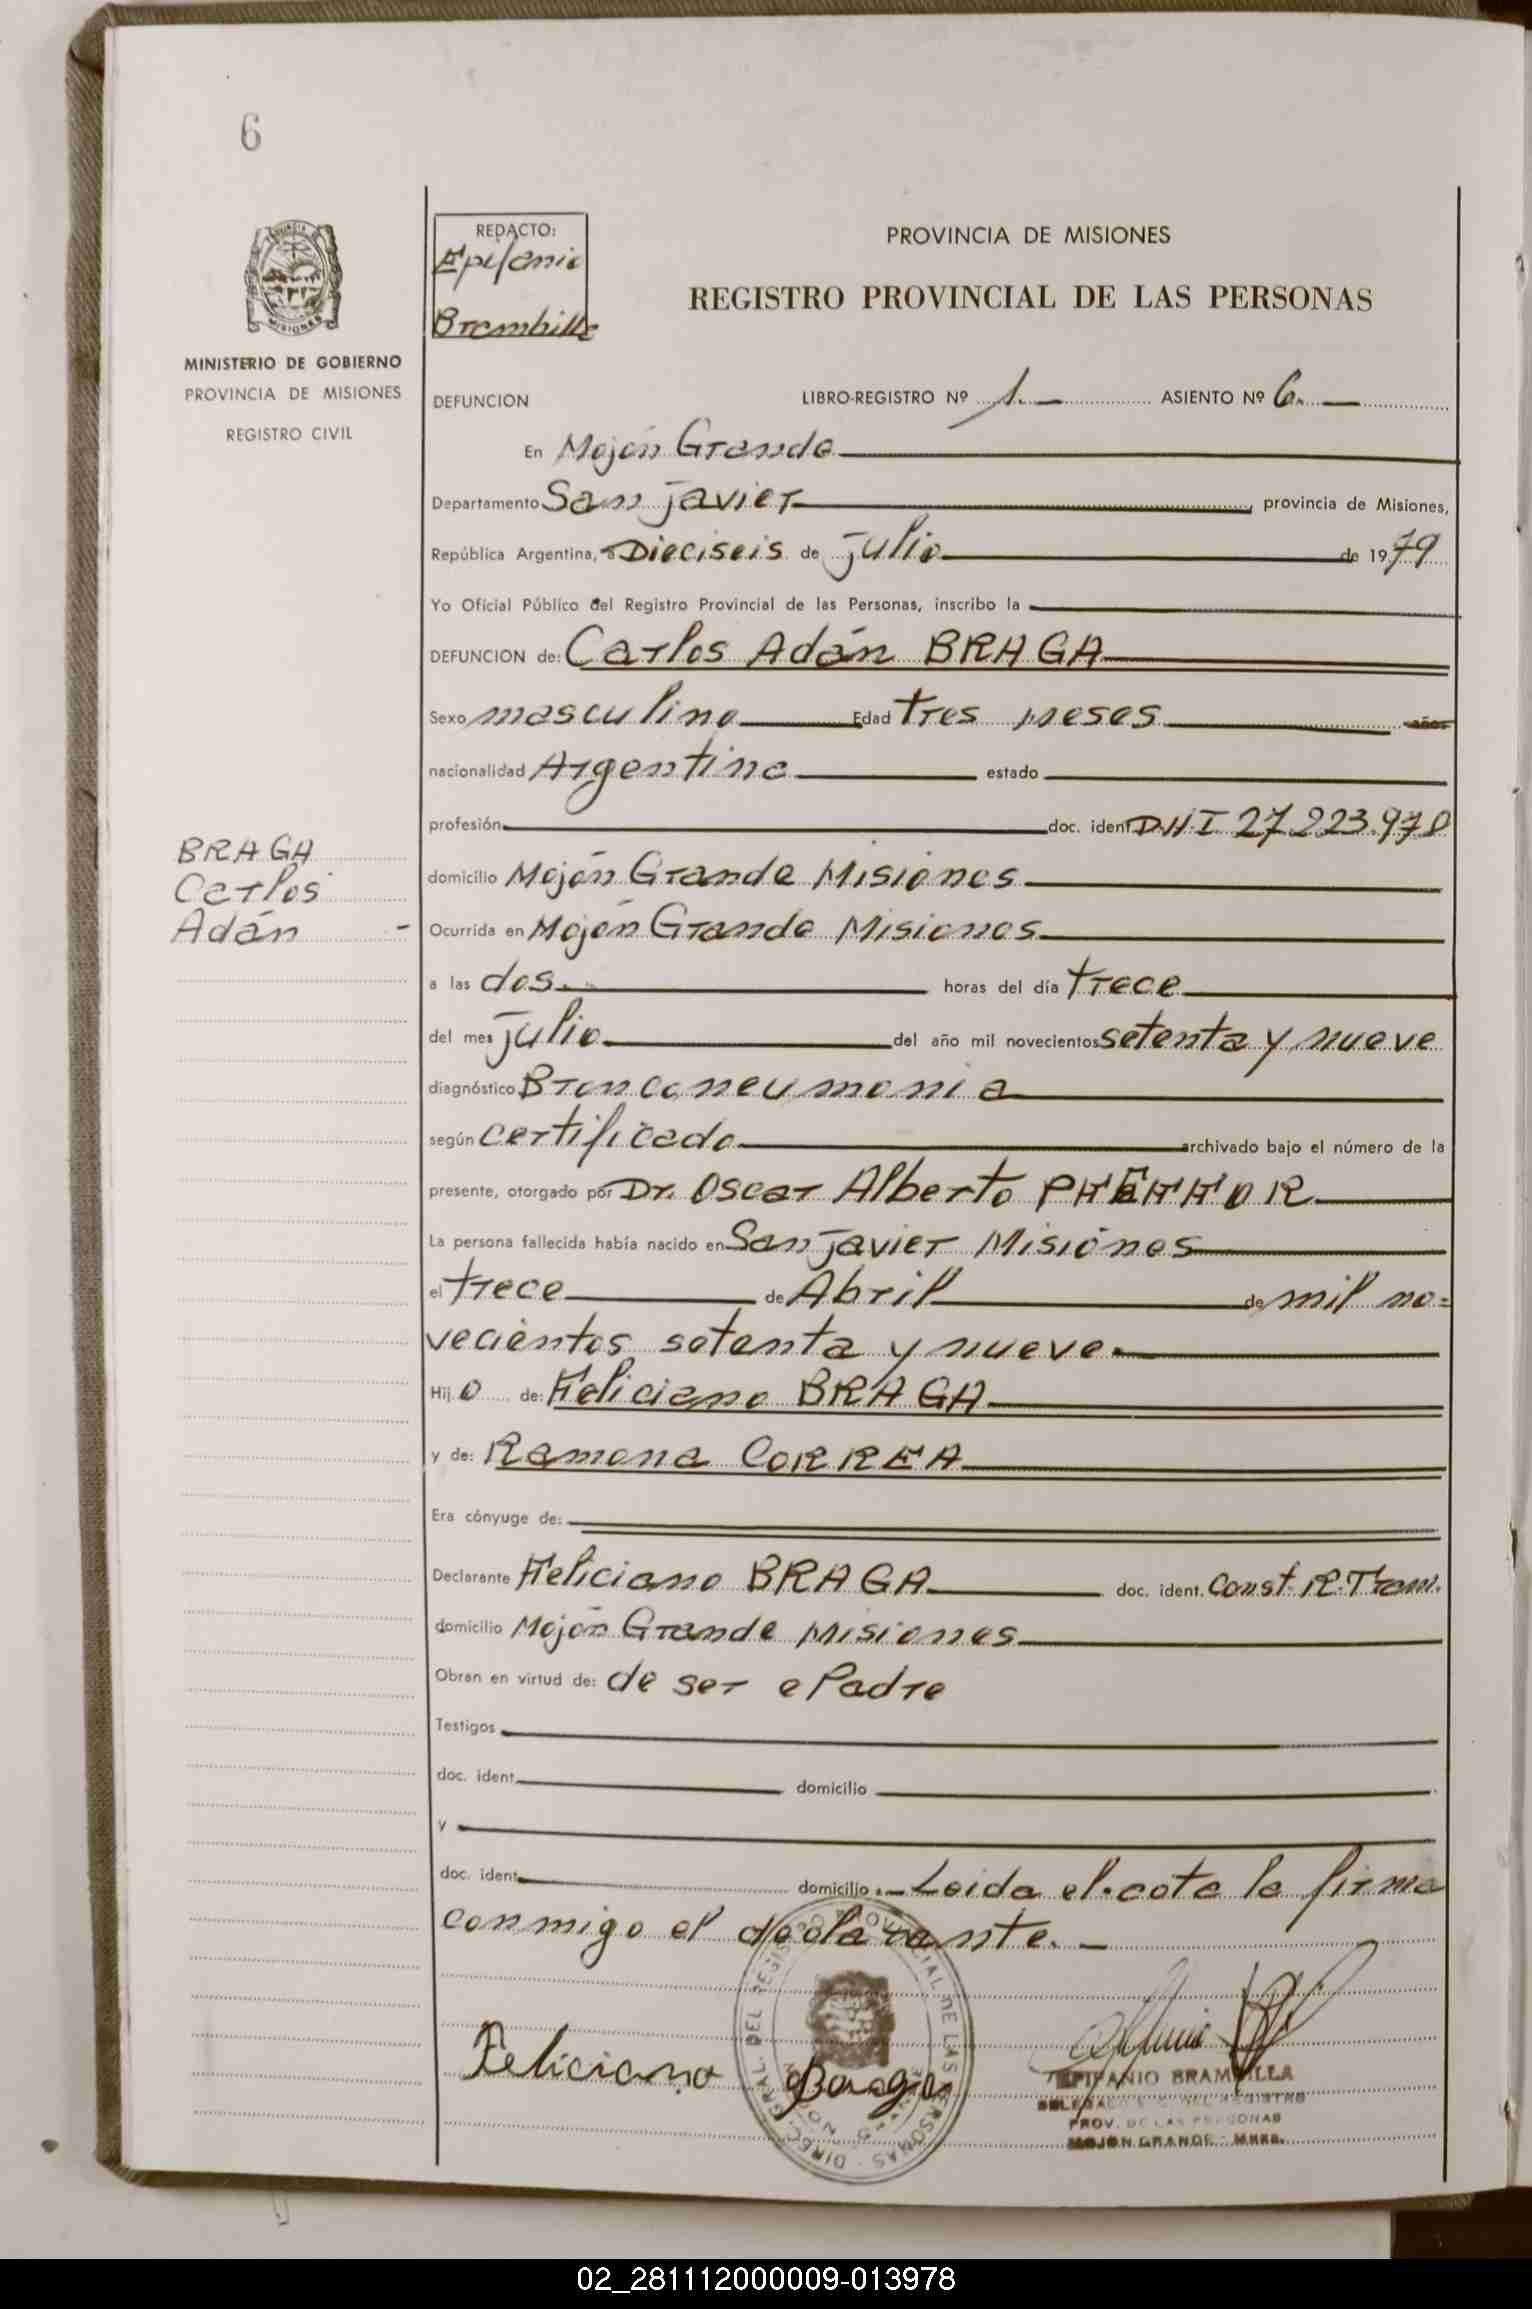 6
MINISTERIO DE GOBIERNO
PROVINCIA DE MISIONES
REGISTRO CIVIL
REDACTO:
Epifanio
Brambilla
PROVINCIA DE MISIONES
REGISTRO PROVINCIAL DE LAS PERSONAS
DEFUNCION LIBRO-REGISTRO Nº 1. ASIENTO Nº 6.
En Mojón Grande
Departamento San Javier provincia de Misiones,
República Argentina, a Dieciseis de Julio de 1979
Yo Oficial Público del Registro Provincial de las Personas, inscribo la
DEFUNCION de: Carlos Adán BRAGA
Sexo masculino Edad tres meses años
nacionalidad Argentina estado
profesión doc. ident. D.N.I 27.223.970
BRAGA
Carlos
Adán -
domicilio Mojón Grande Misiones
Ocurrida en Mojón Grande Misiones
a las dos. horas del día trece
del mes Julio del año mil novecientos setenta y nueve
diagnóstico Bronconeumonia
según certificado archivado bajo el número de la
presente, otorgado por Dr. Oscar Alberto
La persona fallecida había nacido en San Javier Misiones
el trece de Abril de mil no=
vecientos setenta y nueve.
Hij o de: Feliciano BRAGA
y de: Ramona CORREA
Era cónyuge de:
Declarante Feliciano BRAGA doc. ident. Const. R. Tram.
domicilio Mojón Grande Misiones
Obran en virtud de: de ser e Padre
Testigos
doc. ident. domicilio
y
doc. ident. domicilio. Leida el acta la firma
conmigo el declarante.
Feliciano Braga
DIREC. GRAL. DEL REGISTRO PROVINCIAL DE LAS PERSONAS
EPIFANIO BRAMBILLA
PROV. DE LAS PERSONAS
MOJON GRANDE - Mnes.
02_281112000009-013978